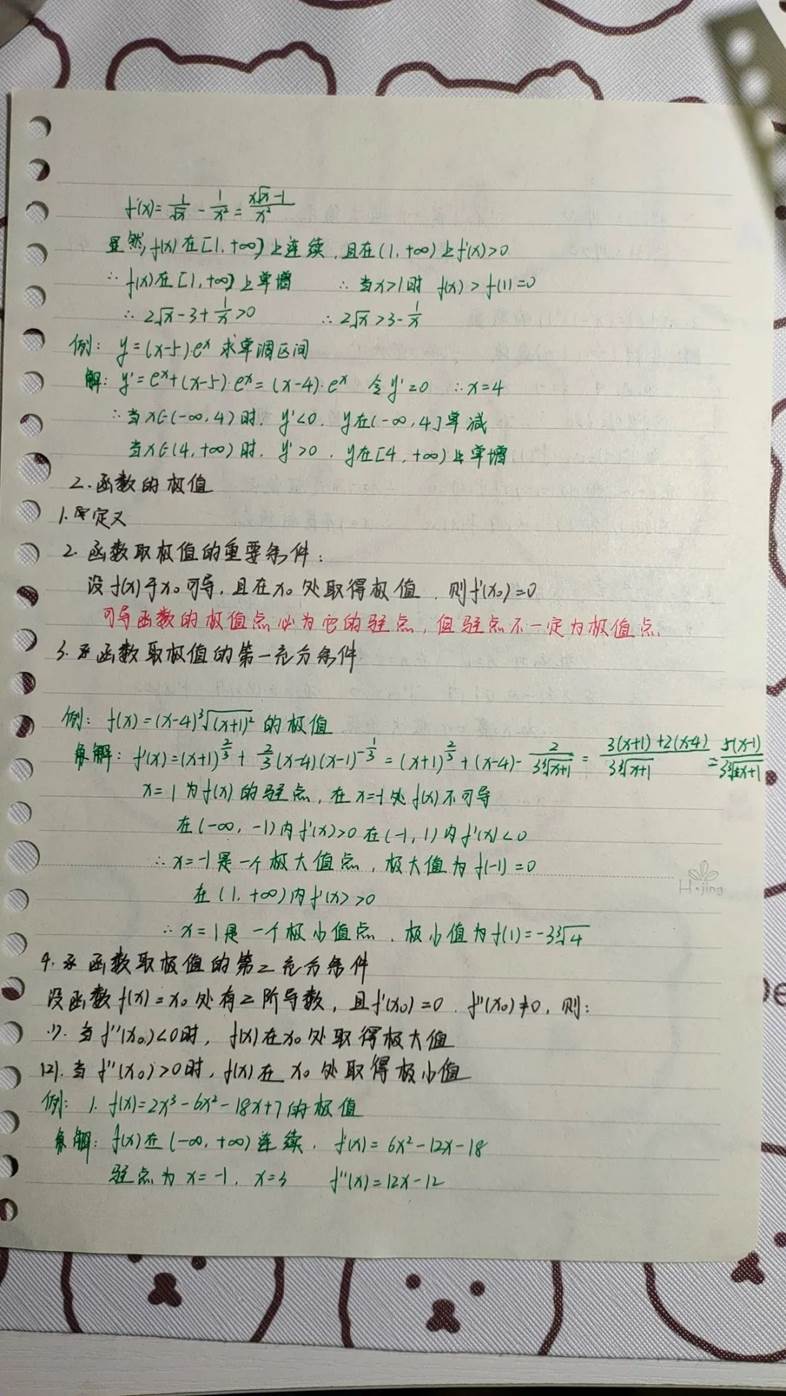 f'(x)=1/√x - 1/x² = (x√x-1)/x²
显然, f(x)在[1,+∞)上连续,且在(1,+∞)上f'(x)>0
∴ f(x)在[1,+∞)上单增 ∴ 当x>1时 f(x)>f(1)=0
∴ 2√x-3+1/x>0 ∴ 2√x>3-1/x
例: y=(x-5)·eˣ 求单调区间
解: y'=eˣ+(x-5)·eˣ=(x-4)·eˣ 令y'=0 ∴x=4
∴当x∈(-∞,4)时, y'<0. y在(-∞,4]单减
当x∈(4,+∞)时, y'>0. y在[4,+∞)上单增
2.函数的极值
1.定义
2.函数取极值的重要条件:
设f(x)于x₀可导,且在x₀处取得极值,则f'(x₀)=0
可导函数的极值点必为它的驻点,但驻点不一定为极值点.
3.函数取极值的第一充分条件
例: f(x)=(x-4)∛(x+1)² 的极值
解: f'(x)=(x+1)^(2/3) + 2/3(x-4)(x-1)^(-1/3) = (x+1)^(2/3)+(x-4)·2/(3∛(x+1)) = (3(x+1)+2(x-4))/(3∛(x+1)) = 5(x-1)/(3∛(x+1))
x=1为f(x)的驻点,在x=-1处f(x)不可导
在(-∞,-1)内f'(x)>0 在(-1,1)内f'(x)<0
∴x=-1是一个极大值点,极大值为f(-1)=0
在(1,+∞)内f'(x)>0
H·jing
∴x=1是一个极小值点,极小值为f(1)=-3∛4
4.函数取极值的第二充分条件
设函数f(x)=x₀处有2阶导数,且f'(x₀)=0. f''(x₀)≠0,则:
(1).当f''(x₀)<0时, f(x)在x₀处取得极大值
(2).当f''(x₀)>0时, f(x)在x₀处取得极小值
例: 1. f(x)=2x³-6x²-18x+7的极值
解: f(x)在(-∞,+∞)连续. f'(x)=6x²-12x-18
驻点为x=-1, x=3 f''(x)=12x-12